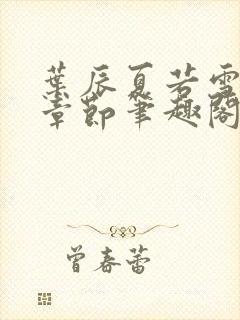 葉辰夏若雪
章節筆趣閣
曾春蕾